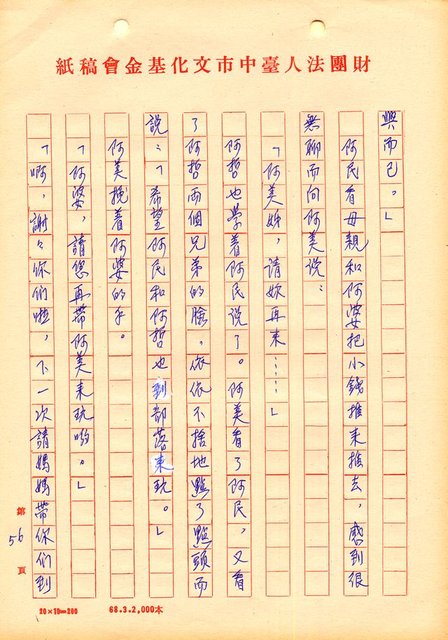 財團法人臺中市文化基金會稿紙
興而已。」
阿民看母親和阿婆把小錢推來推去，感到很
無聊而向阿美說：
「阿美姊，請妳再來……」
阿哲也學着阿民說了。阿美看了阿民，又看
了阿哲兩個兄弟的臉，依依不捨地點了點頭而
說：「希望阿民和阿哲也到部落來玩。」
阿美挽着阿婆的手。
「阿婆，請您再帶阿美來玩喲。」
「啊，謝々你們啦，下一次請媽媽帶你們到
第56頁
20×10=200 68.3.2,000本